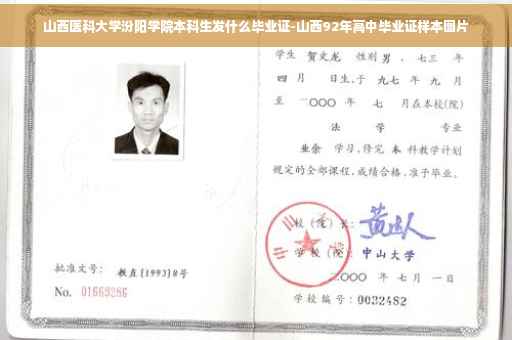 山西医科大学汾阳学院本科生发什么毕业证-山西92年高中毕业证样本图片
学生 贺文龙 性别 男 、七三 年
四 月 日生,于 九七 年 九 月
至 二〇〇〇 年 七 月在本校(院)
法 学 专业
业余 学习,修完 本 科教学计划
规定的全部课程,成绩合格,准予毕业。
校(院)长:
学 校(院): 中山大学
二〇〇〇 年 七 月 一 日
学校编号: 0032482
批准文号: 教直(1993)8号
No. 01663286